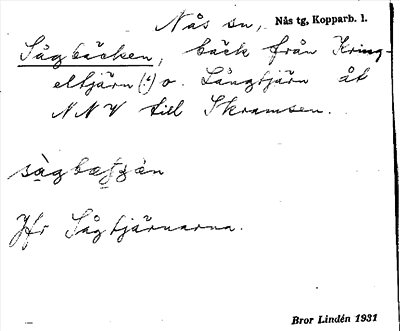 Nås sn, Nås tg, Kopparb. l.
Sågbäcken, bäck från Kring-
eltjärn (!) o. Långtjärn åt
NNV till Skramsen.
Jfr Sågtjärnarna.
Bror Lindén 1931